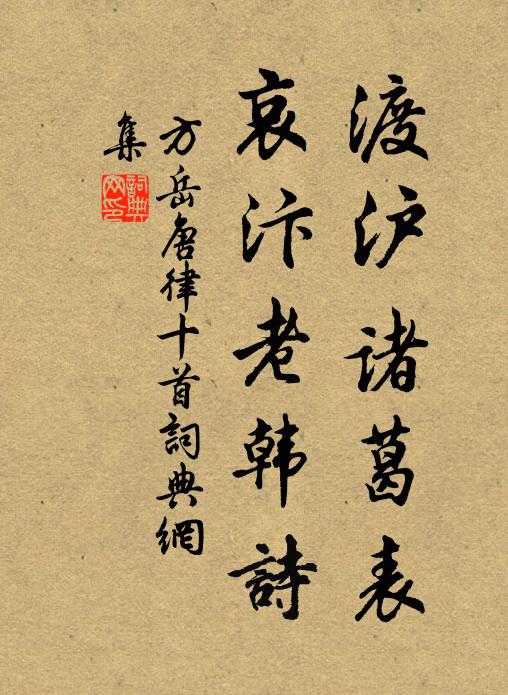 渡沪诸葛表
哀汴老韩詩
方岳唐律十首詞典網
集
詞典網印